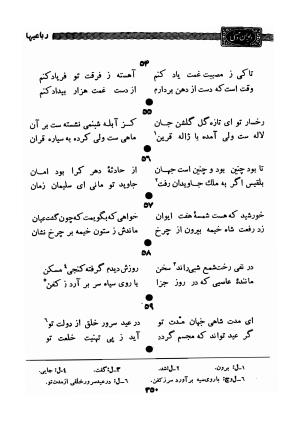 رباعیها
۵۴
تا کی ز مصیبت غمت یاد کنم
آهسته ز فرقت تو فریاد کنم
وقت است که دست از دهن بردارم
از دست غمت هزار بیداد کنم
۵۵
رخسار تو ای تازه گل گلشن جان
کز آبله شبنمی نشسته ست بر آن
لاله ست ولی آمده با ژاله قرین
ماهی ست ولی کرده به سیاره قران
۵۶
تا بود چنین بود و چنین است جهان
از حادثهٔ دهر کرا بود امان
بلقیس اگر به ملک جاویدان رفت
جاوید تو مانی ای سلیمان زمان
۵۷
خورشید که هست شمسهٔ هفت ایوان
خواهی که بگویمت که چون گشت عیان
زد رفعت شاه خیمه بیرون از چرخ
ماندش ز ستون خیمه بر چرخ نشان
۵۸
در نفی رخت شمع شبی راند سخن
روزش دیدم گرفته کنجی مسکن
مانندهٔ عاصیی که در روز جزا
با روی سیاه سر بر آرد ز کفن
۵۹
ای مدت شاهی جهان مدت تو
در عید سرور خلق از دولت تو
گر عید تواند که مجسم گردد
آید ز پی تهنیت خلعت تو
۱ـ ل: برون.
۳ـ ل: گفت.
۴ـ ل: جایی.
۳۵۰